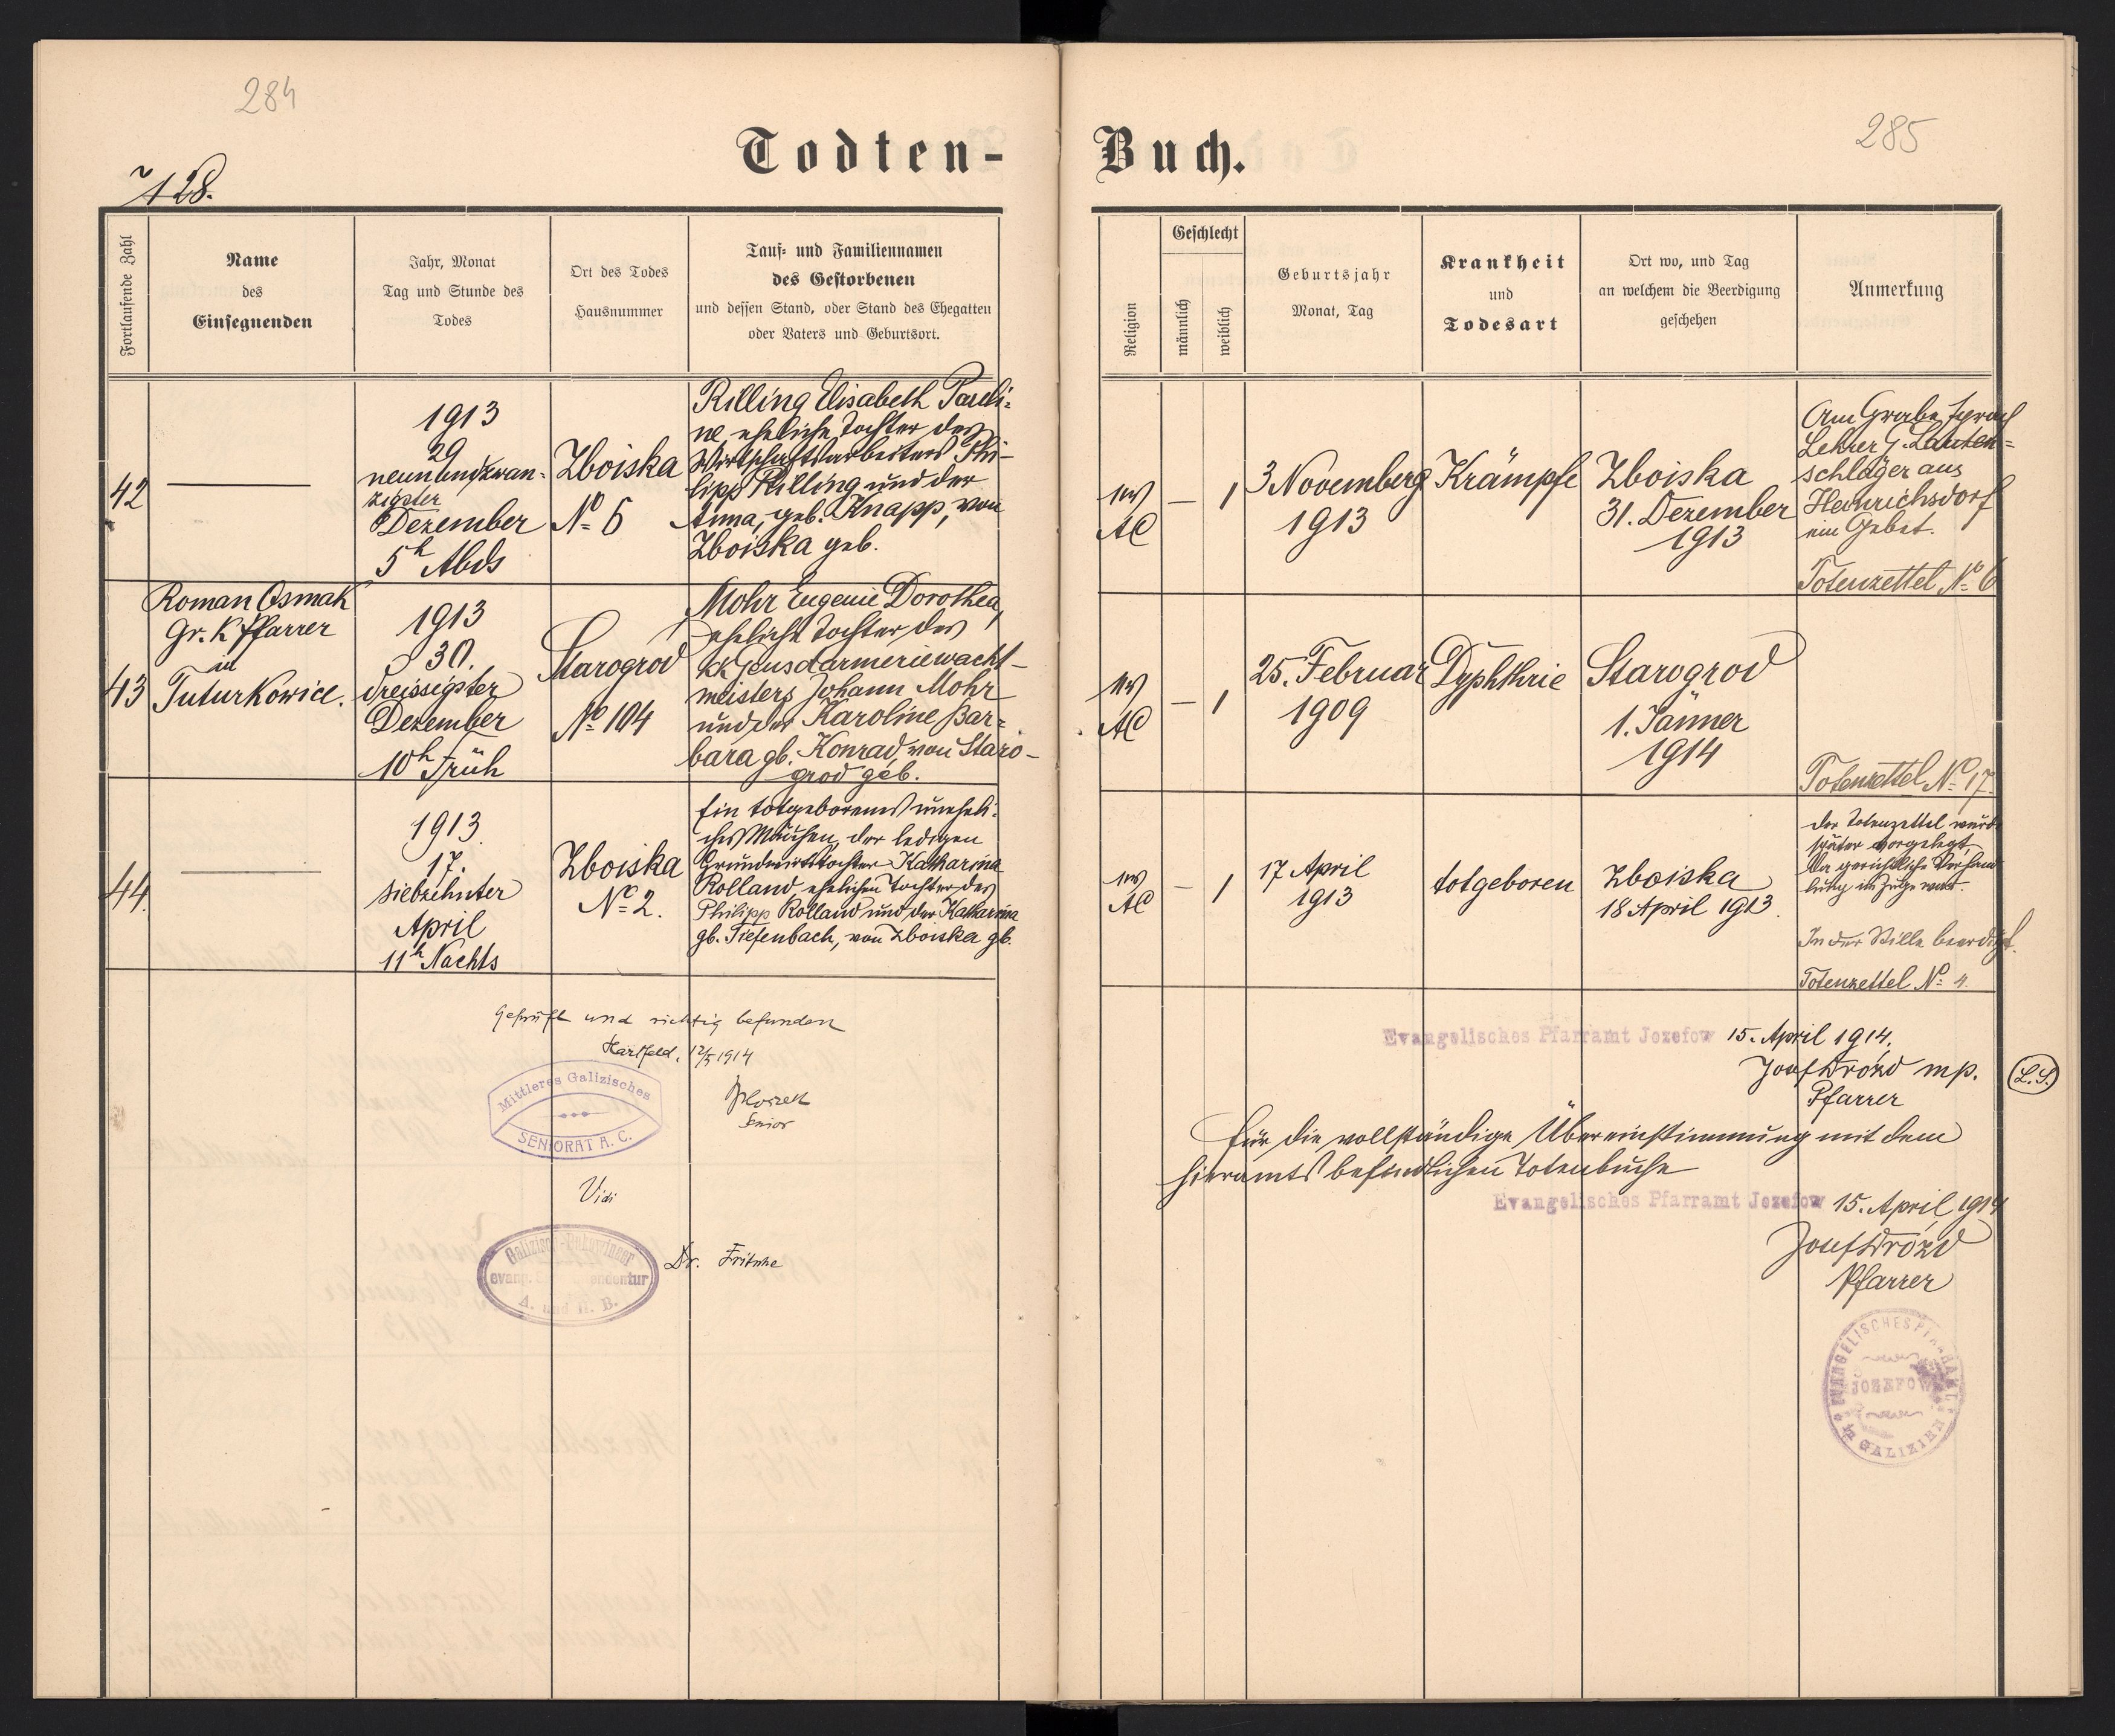 284
285
Todten-Buch.
128.
Fortlaufende Zahl
Name
des
Einsegnenden
Jahr, Monat
Tag und Stunde des
Todes
Ort des Todes
Hausnummer
Tauf- und Familiennamen
des Gestorbenen
und dessen Stand, oder Stand des Ehegatten
oder Vaters und Geburtsort.
Religion
Geschlecht
männlich
weiblich
Geburtsjahr
Monat, Tag
Krankheit
und
Todesart
Ort wo, und Tag
an welchem die Beerdigung
geschehen
Anmerkung
42
1913
29
neunundzwan-
zigster
Dezember
5h Abds
Zboiska
No 6
Rilling Elisabeth Pauli-
ne eheliche Tochter des
Wirtschaftsarbeiters Phi-
lipp Rilling und der
Anna, geb. Knapp, von
Zboiska geb.
ev
AC
—
1
3 November
1913
Krämpfe
Zboiska
31. Dezember
1913
Am Grabe sprach
Lehrer J. Lauten-
schläger aus
Heinrichsdorf
ein Gebet.
Totenzettel No 6
43
Roman Osmak
Gr. K Pfarrer
in
Tuturkowice.
1913
30.
dreissigster
Dezember
10h Früh
Starogrod
No 104
Mohr Eugenie Dorothea,
eheliche Tochter des
kk Gensdarmeriewacht-
meisters Johann Mohr
und der Karoline Bar-
bara gb. Konrad, von Staro-
grod geb.
ev
AC
—
1
25. Februar
1909
Dyphthrie
Starogrod
1. Jänner
1914
Totenzettel No 17.
44.
1913.
17.
siebzehnter
April
11h Nachts
Zboiska
No 2.
Ein totgeborenes uneheli-
ches Mädchen, der ledigen
Grundwirtstochter Katharina
Rolland, ehelichen Tochter des
Philipp Rolland und der Katharina
gb. Tiefenbach, von Zboiska gb.
ev
AC
—
1
17 April
1913
totgeboren
Zboiska
18 April 1913.
Der Totenzettel wurde
später vorgelegt,
da gerichtliche Verhand-
lung im Zuge war.
In der Stille beerdigt.
Totenzettel No 4.
Geprüft und richtig befunden
Hartfeld, 12/5 1914
Mittleres Galizisches
SENIORAT A. C.
Senior
Vidi
Galizisch-Bukowinaer
evang. endentur
A. und H. B.
Dr. Fritsche
Evangelisches Pfarramt Jozefow 15. April 1914.
Josef Drózd mp.
Pfarrer
L.S.
Für die vollständige Übereinstimmung mit dem
hieramts befindlichen Totenbuche
Evangelisches Pfarramt Jozefow 15. April 1914
Josef Drózd
Pfarrer
EVANGELISCHES PFARRAMT
JOZEFOW
in GALIZIEN